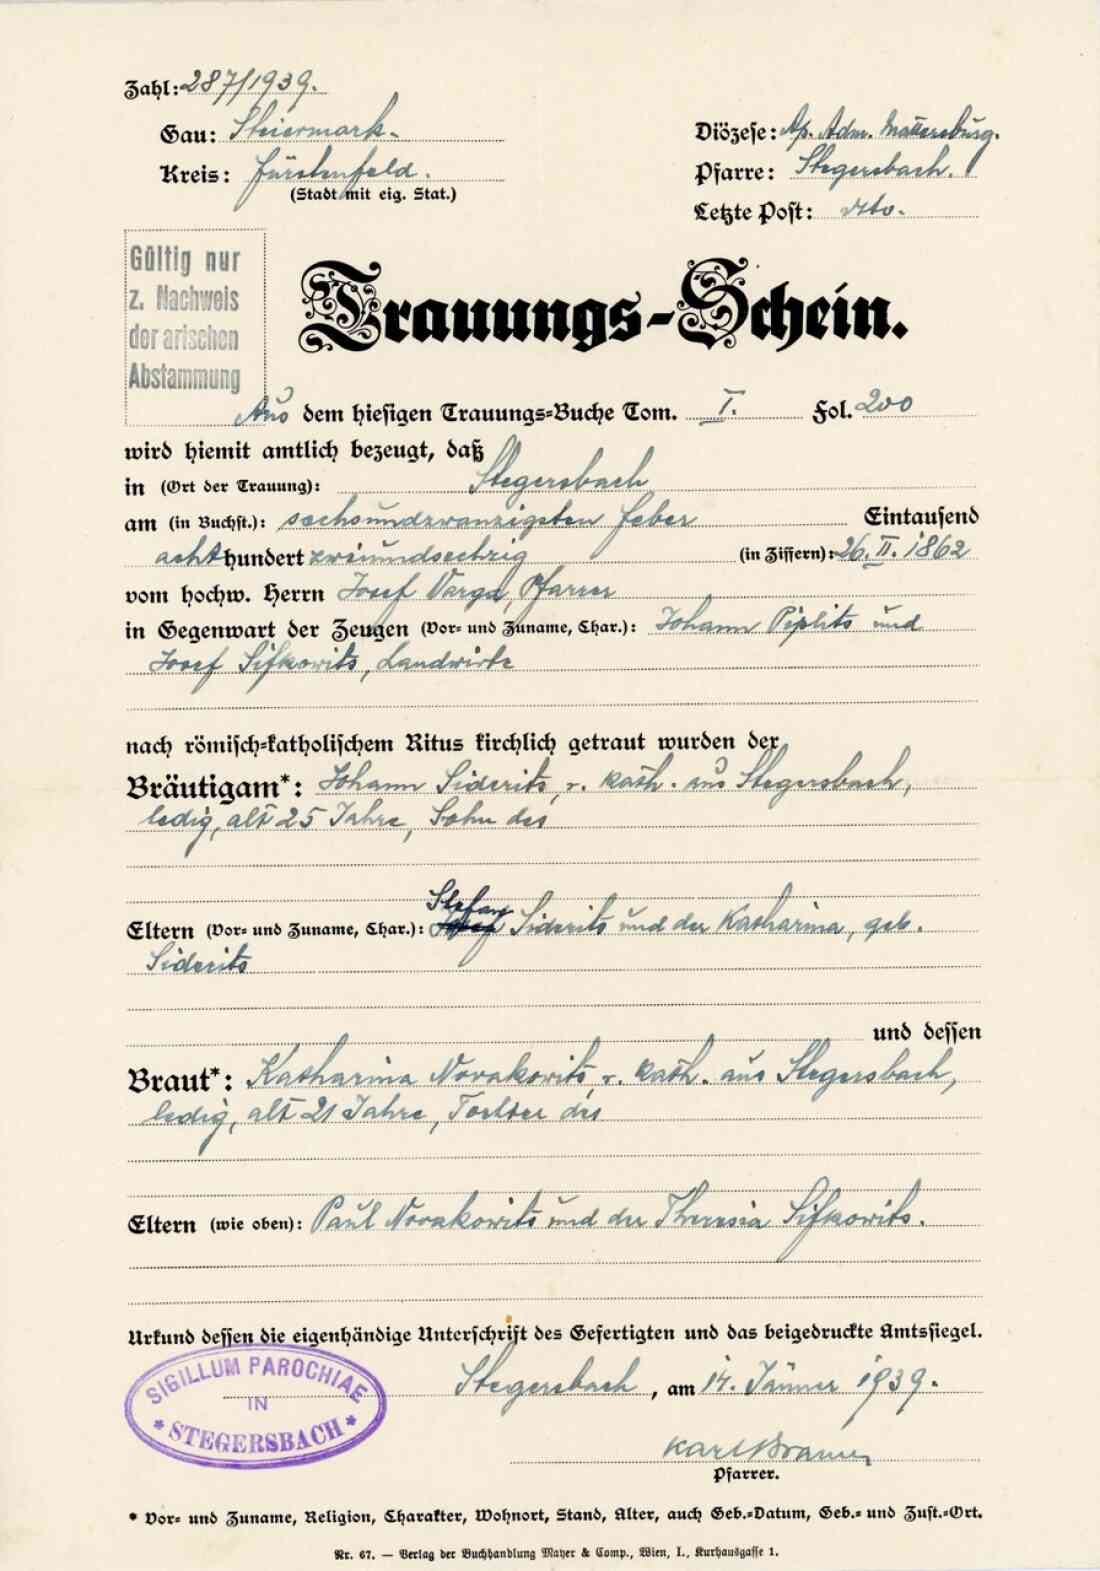 Zahl: 287/1939.
Gau: Steiermark.
Kreis: Fürstenfeld.
(Stadt mit eig. Stat.)
Diözese: Ap. Adm. Mattersburg.
Pfarre: Stegersbach.
Letzte Post: dto.
Gültig nur
z. Nachweis
der arischen
Abstammung
Trauungs-Schein.
Aus dem hiesigen Trauungs-Buche Tom. I. Fol. 200
wird hiemit amtlich bezeugt, daß
in (Ort der Trauung): Stegersbach
am (in Buchst.): sechsundzwanzigsten Feber Eintausend
achthundert zweiundsechzig (in Ziffern): 26. II. 1862
vom hochw. Herrn Josef Varga, Pfarrer
in Gegenwart der Zeugen (Vor- und Zuname, Char.): Johann Piplits und
Josef Sifkowits, Landwirte
nach römisch-katholischem Ritus kirchlich getraut wurden der
Bräutigam*: Johann Siderits, r. kath. aus Stegersbach,
ledig, alt 25 Jahre, Sohn des
Stefan
Eltern (Vor- und Zuname, Char.): Siderits und der Katharina, geb.
Siderits
und dessen
Braut*: Katharina Novakowits r. kath. aus Stegersbach,
ledig, alt 21 Jahre, Tochter des
Eltern (wie oben): Paul Novakowits und der Theresia Sifkowits.
Urkund dessen die eigenhändige Unterschrift des Gefertigten und das beigedruckte Amtssiegel.
SIGILLUM PAROCHIAE
IN
* STEGERSBACH *
Stegersbach, am 14. Jänner 1939.
Karl
Pfarrer.
* Vor- und Zuname, Religion, Charakter, Wohnort, Stand, Alter, auch Geb.-Datum, Geb.- und Zust.-Ort.
Nr. 67. — Verlag der Buchhandlung Mayer & Comp., Wien, I., Kurhausgasse 1.